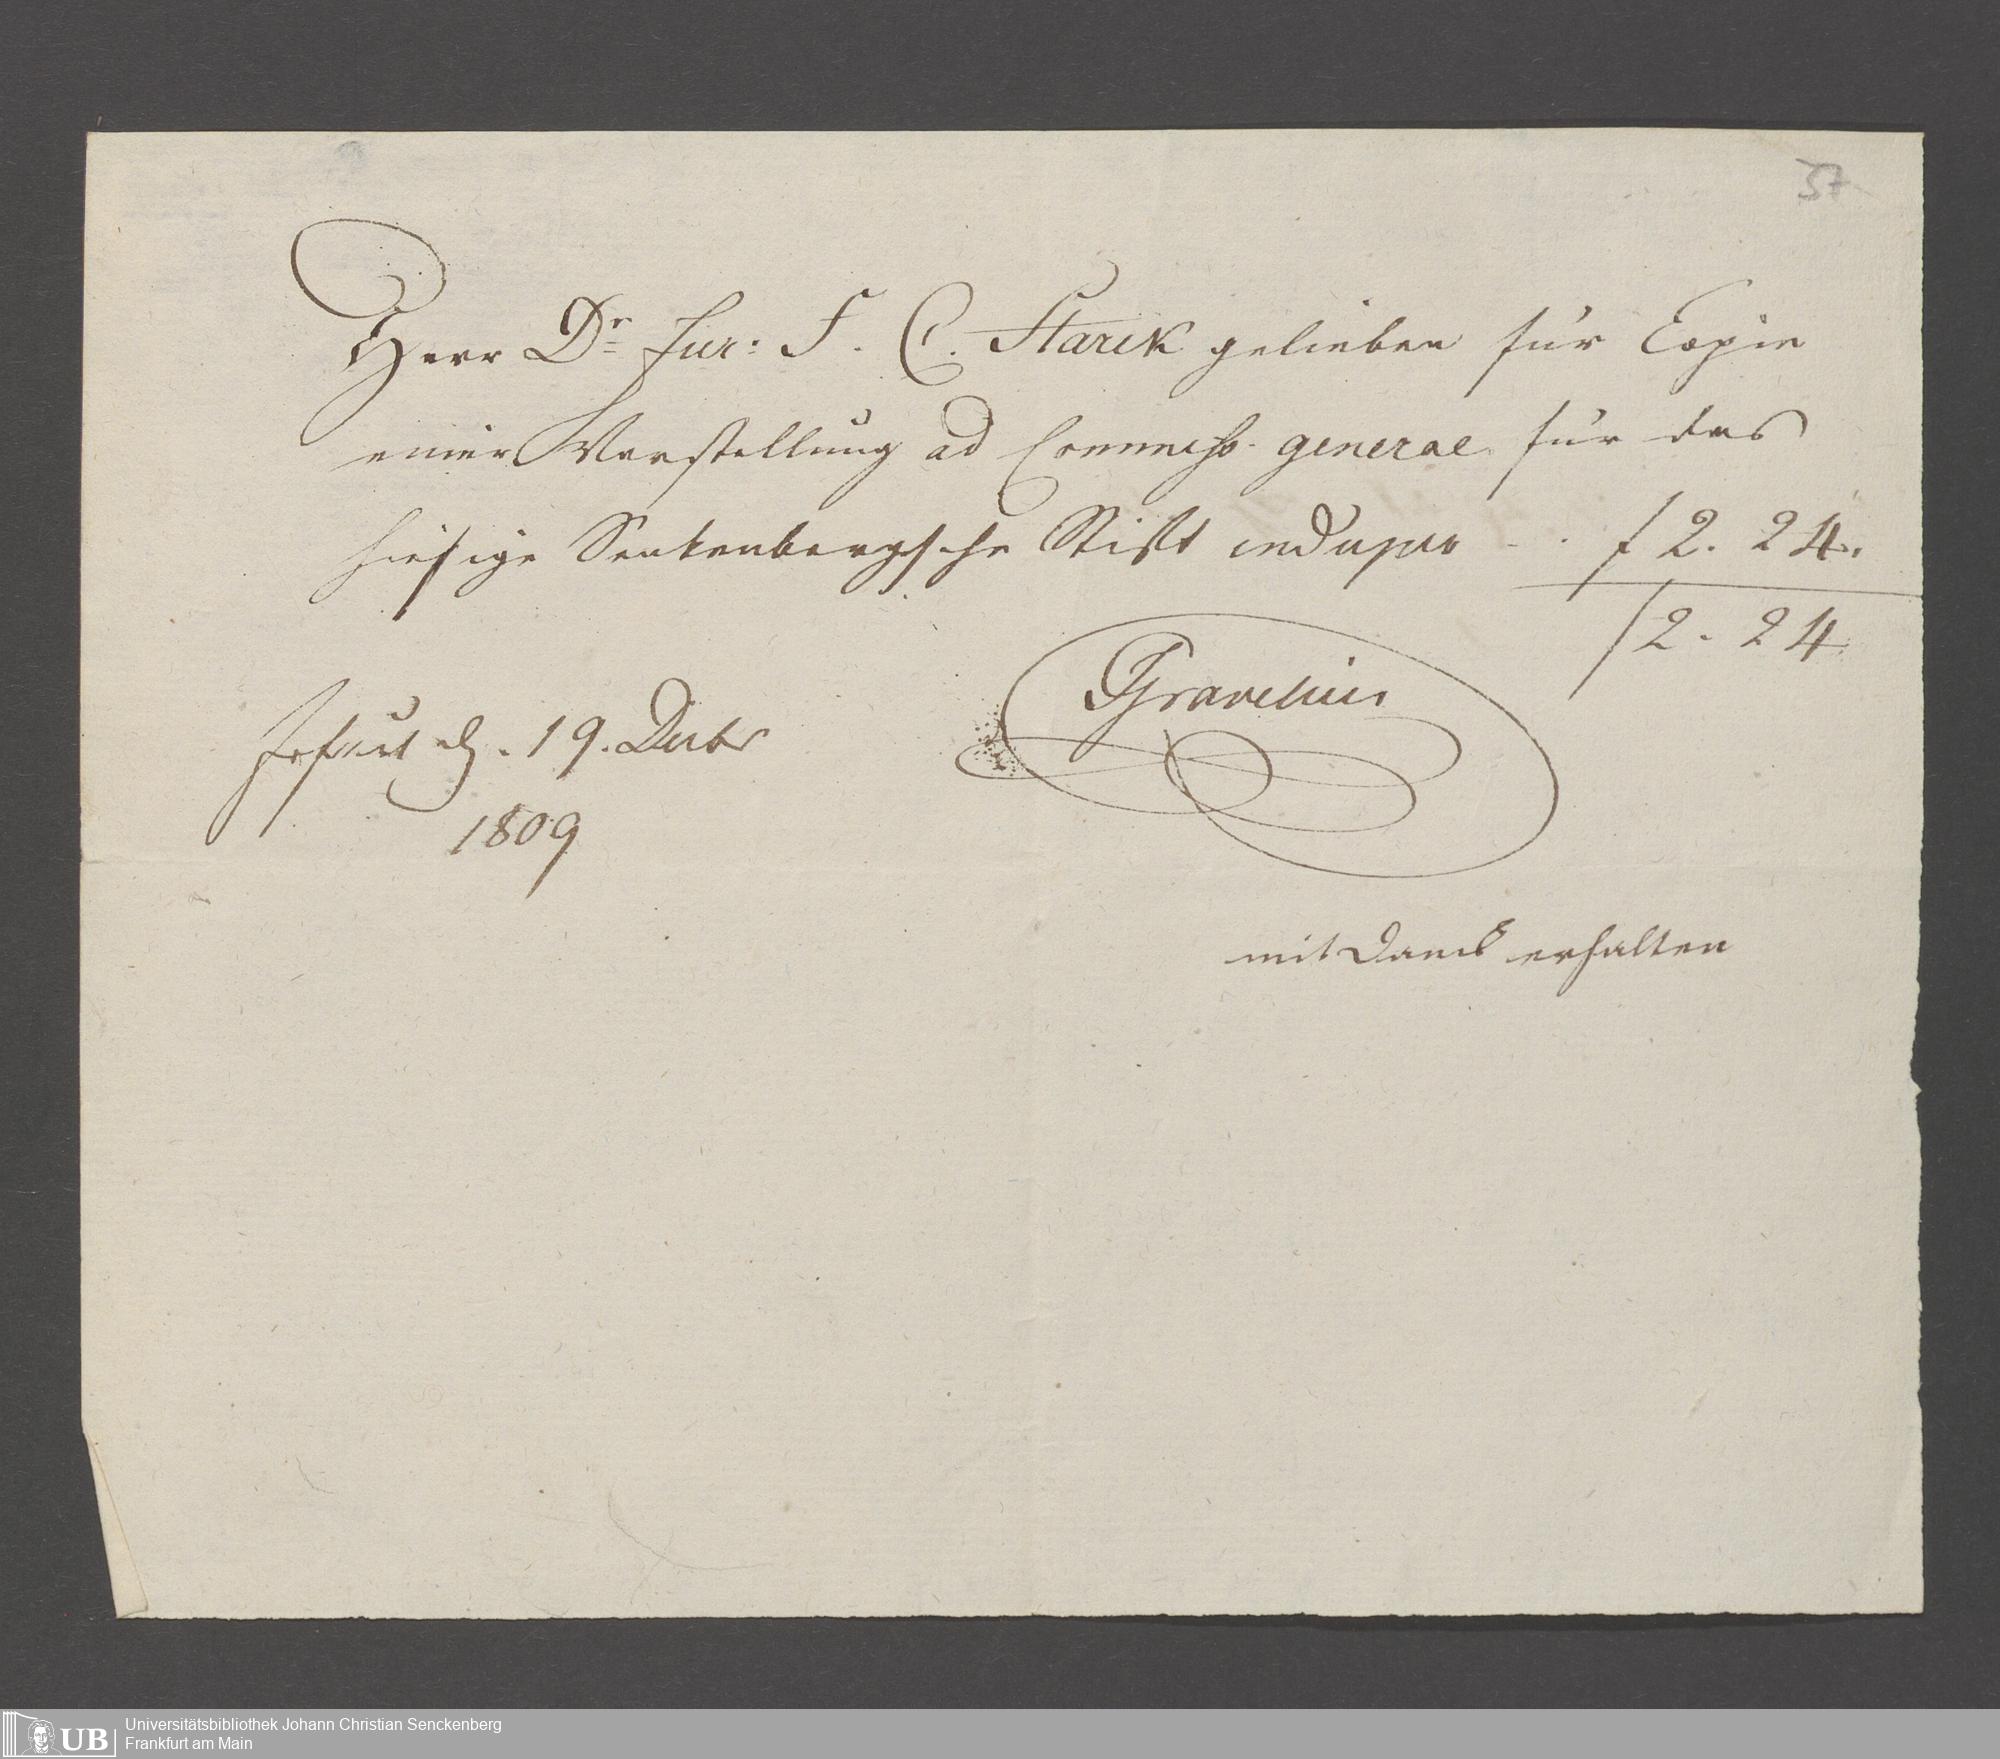 37
Herr Dr. Jur: F. C. Starck gelieben für Copie
einer Vorstellung ad Commiss. generae für das
hiesige Senkenbergische Stift in duplo - . f 2. 24.
f 2. 24
Gravelius
Frfurt d. 19. Decbr
1809
mit Danck erhalten
UB
Universitätsbibliothek Johann Christian Senckenberg
Frankfurt am Main